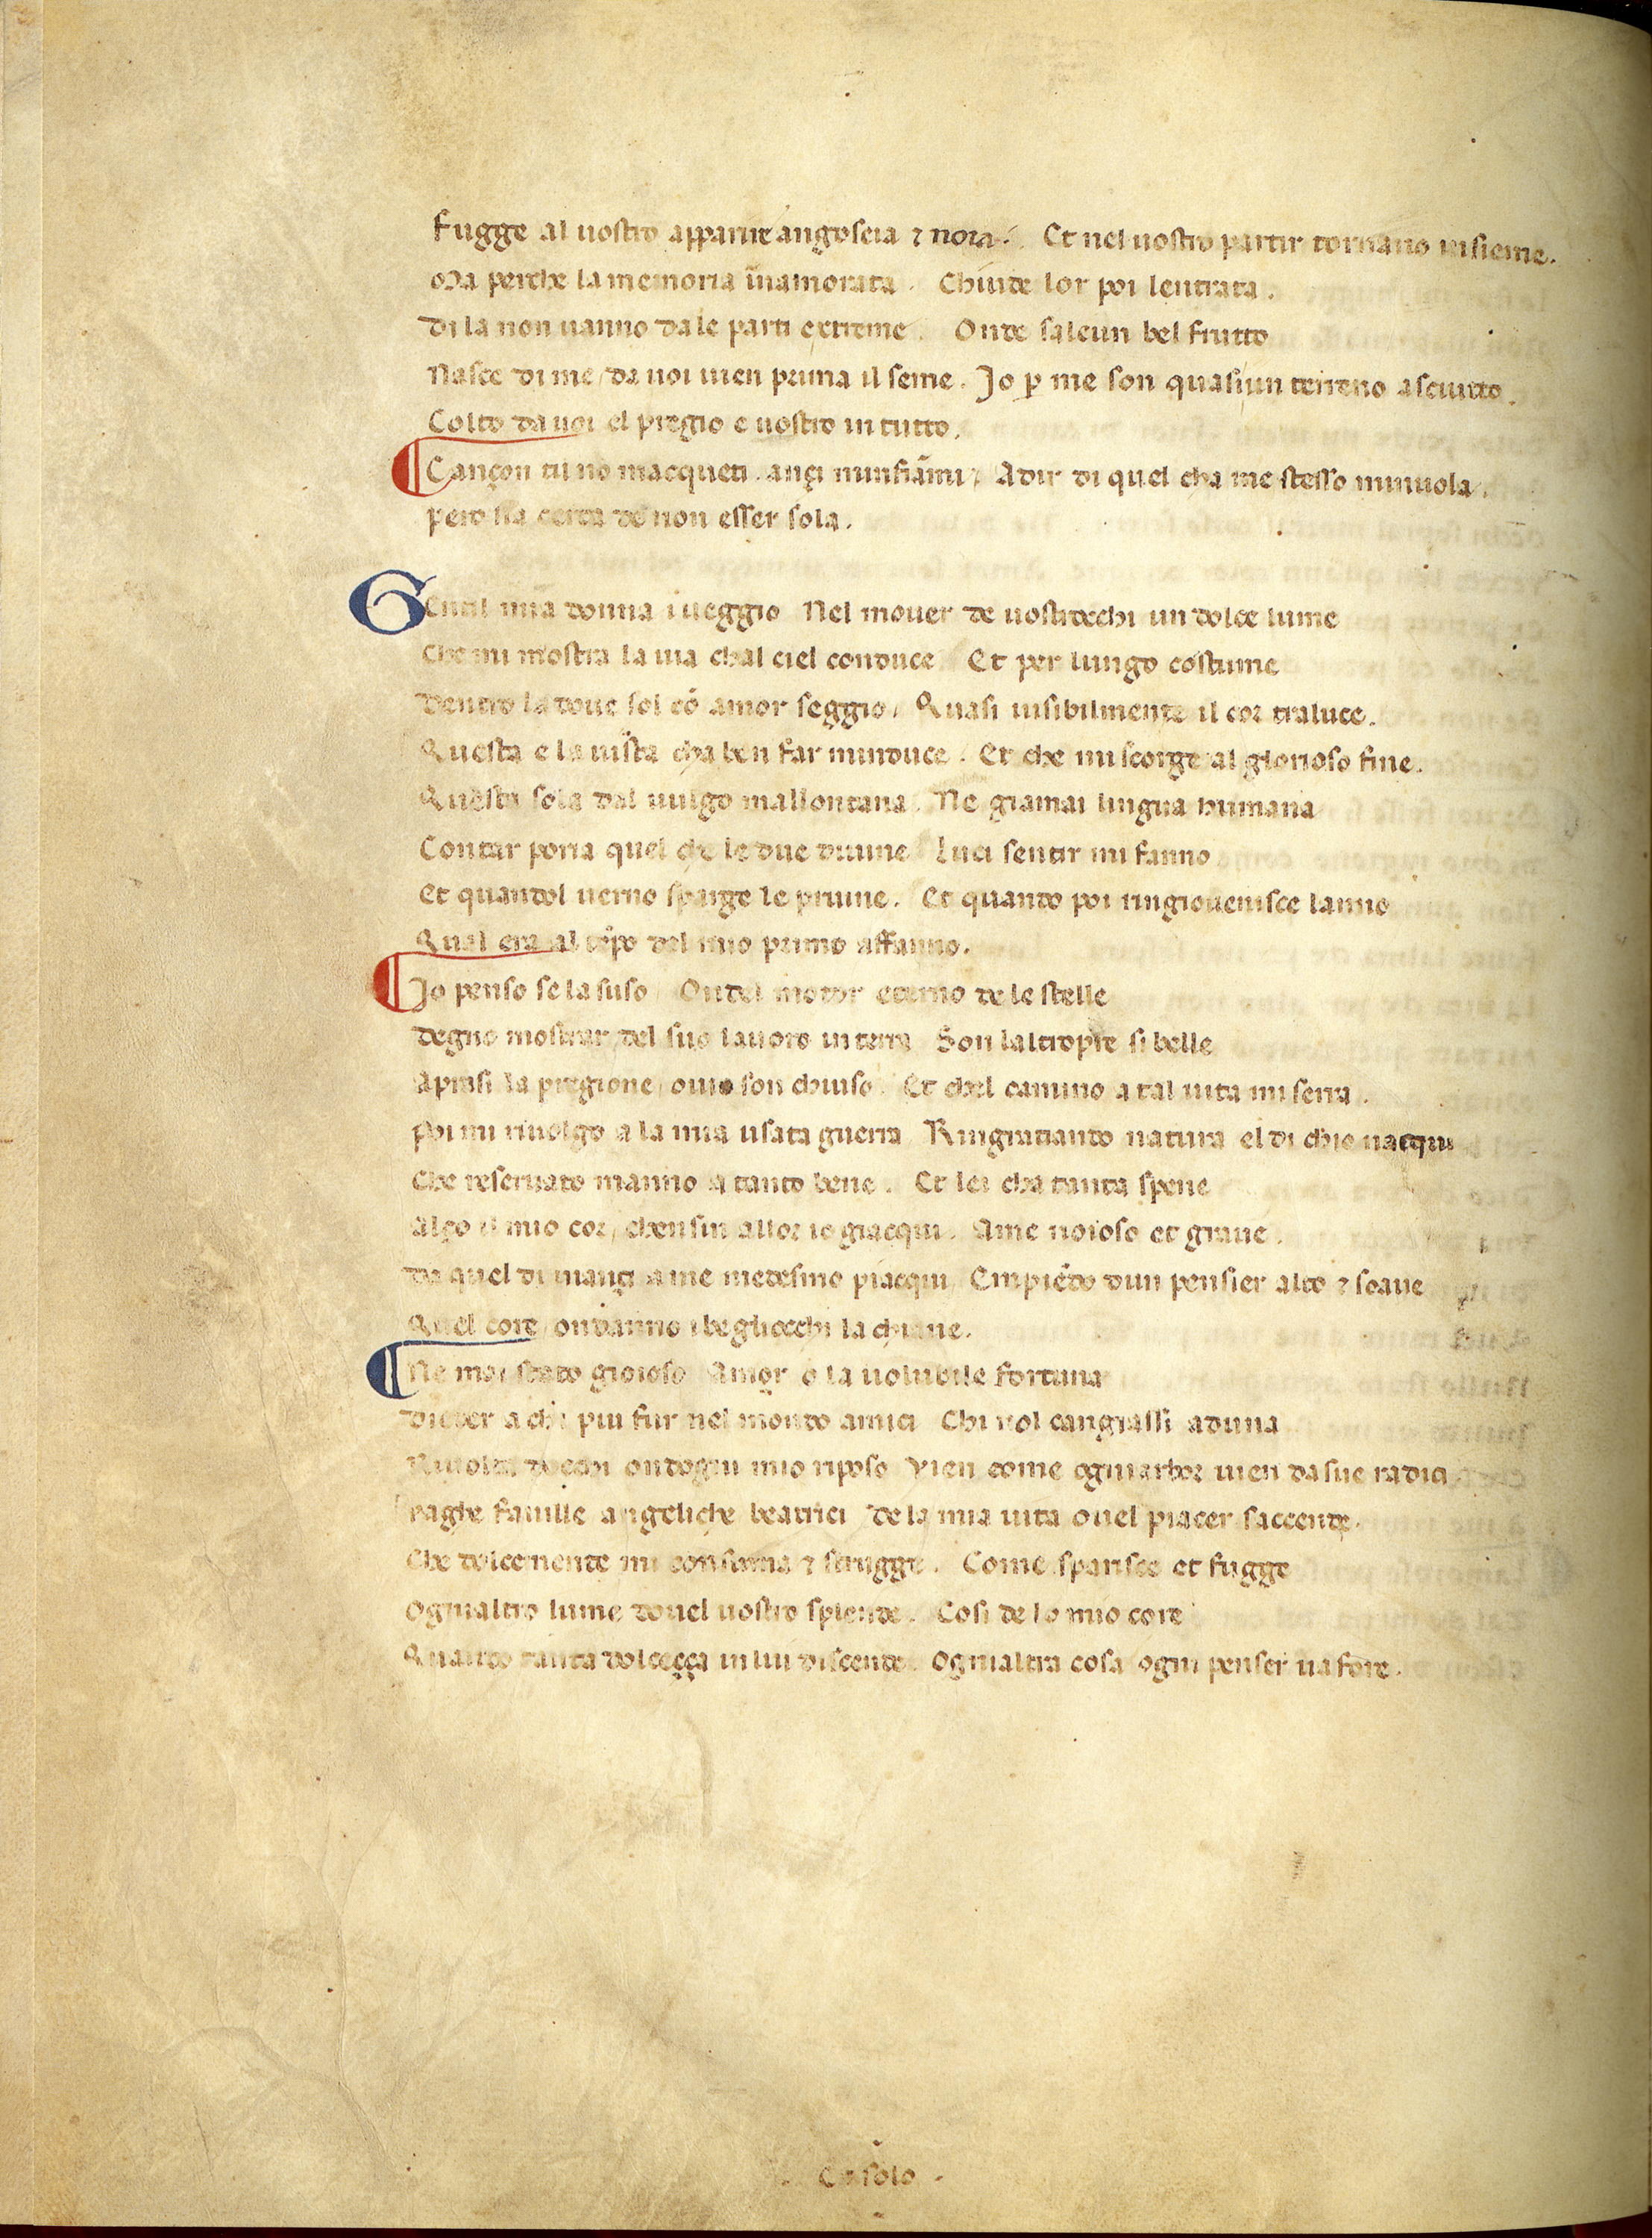 Fugge al uostro apparire angoscia ⁊ noia. Et nel uostro partir tornano insieme.
Ma perche la memoria ĩnamorata. Chiude lor poi lentrata.
Di la non uanno dale parti extreme. Onde salcun bel frutto
Nasce di me / da uoi uien prima il seme. Io ꝑ me son quasi un terreno asciutto.
Colto da uoi el pregio e uostro in tutto.
Cançon tu nõ macqueti. ançi minfiãmi / Adir di quel cha me stesso minuola.
pero sia certa de non esser sola.
Gentil mia donna i ueggio Nel mouer de uostrocchi un dolce lume
Che mi mostra la uia chal ciel conduce Et per lungo costume
Dentro la doue sol cõ amor seggio. Quasi uisibilmente il cor traluce.
Questa e la uista cha ben far minduce. Et che mi scorge al glorioso fine.
Questa sola dal uulgo mallontana. Ne giamai lingua humana
Contar poria quel che le due diuine Luci sentir mi fanno
Et quandol uerno sparge le prume. Et quando poi ringiouenisce lanno
Qual era al tẽpo del mio primo affanno.
Io penso se la suso Ondel motor eterno de le stelle
Degno mostrar del suo lauoro in terra Son laltropre si belle
Aprasi la pregione / ouio son chiuso. Et chel camino a tal uita mi serra.
Poi mi riuolgo a la mia usata guerra Ringratiando natura el di chio nacqui
Che reseruato manno a tanto bene. Et lei cha tanta spene
Alço il mio cor / chensin allor io giacqui. Ame noioso et graue.
Da quel di inançi a me medesmo piacqui Empiẽdo dun pensier alto ⁊ soaue
Quel core / ondanno i begliocchi la chiaue.
Ne mai stato gioioso Amor o la uolubile fortuna
Dieder a chi piu fur nel mondo amici Chi nol cangiassi aduna
Riuolta docchi ondogni mio riposo Vien come ogniarbor uien da sue radici
Vaghe fauille angeliche beatrici De la mia uita ouel piacer saccende.
Che dolcemente mi consuma ⁊ strugge. Come sparisce et fugge
Ognialtro lume douel uostro splende. Cosi de lo mio core
Quando tanta dolceçça in lui discende. Ogni altra cosa ogni penser ua fore.
Et solo